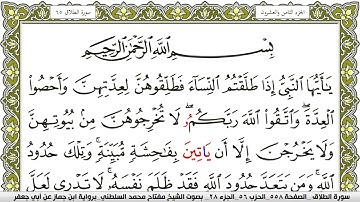 الجزء الثامن والعشرون
سورة الطلاق ٦٥
بِسْمِ اللَّهِ الرَّحْمَٰنِ الرَّحِيمِ
يَٰٓأَيُّهَا النَّبِيُّ إِذَا طَلَّقْتُمُ النِّسَآءَ فَطَلِّقُوهُنَّ لِعِدَّتِهِنَّ وَأَحْصُوا
الْعِدَّةَ وَاتَّقُوا اللَّهَ رَبَّكُمُۥ لَا تُخْرِجُوهُنَّ مِنۢ بُيُوتِهِنَّ
وَلَا يَخْرُجْنَ إِلَّآ أَن يَاتِينَ بِفَٰحِشَةٍ مُّبَيِّنَةٍ وَتِلْكَ حُدُودُ
اللَّهِ وَمَن يَتَعَدَّ حُدُودَ اللَّهِ فَقَدْ ظَلَمَ نَفْسَهُۥ لَا تَدْرِى لَعَلَّ
سورة الطلاق - الصفحة ٥٥٨ - الحزب ٥٦ - الجزء ٢٨ - بصوت الشيخ مفتاح محمد السلطني - برواية ابن جماز عن أبي جعفر